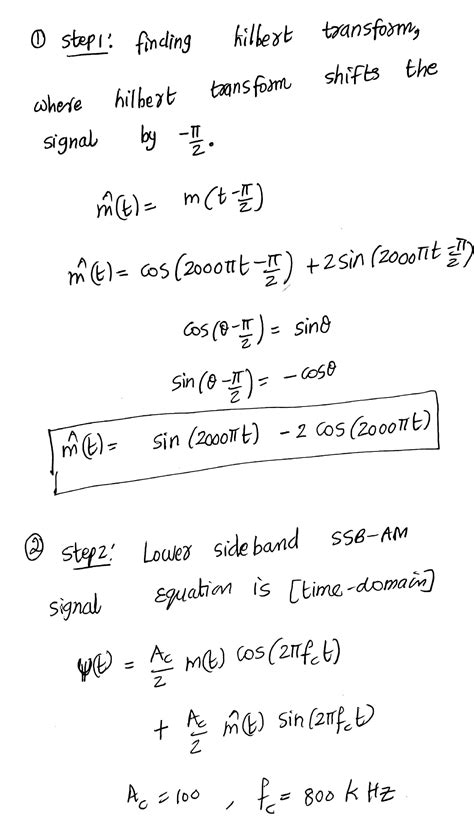 ① Step1: finding hilbert transform,
where hilbert transform shifts the
signal by -π/2.
m̂(t) = m(t-π/2)
m̂(t) = cos(2000πt-π/2) + 2 sin(2000πt-π/2)
cos(θ-π/2) = sinθ
sin(θ-π/2) = -cosθ
m̂(t) = sin(2000πt) - 2 cos(2000πt)
② Step2: Lower sideband SSB-AM
signal equation is [time-domain]
ψ(t) = Ac/2 m(t) cos(2πfct)
+ Ac/2 m̂(t) sin(2πfct)
Ac = 100 , fc = 800 kHz